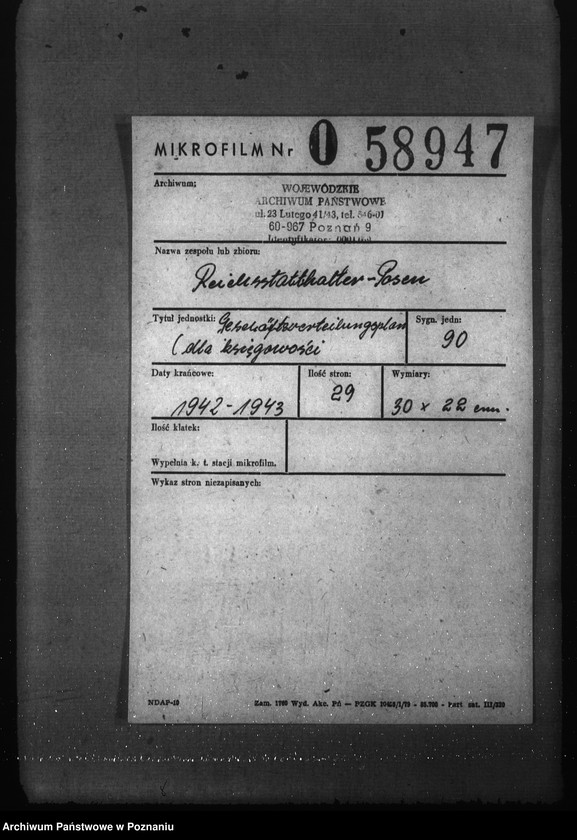 MIKROFILM Nr O 58947
Archiwum:
WOJEWÓDZKIE
ARCHIWUM PAŃSTWOWE
ul. 23 Lutego 41/43, tel. 546-01
60-967 Poznań 9
Identyfikator:
Nazwa zespołu lub zbioru:
Reichsstatthalter-Posen
Tytuł jednostki: Geschäftsverteilungsplan
(dla księgowości
Sygn. jedn:
90
Daty krańcowe:
1942-1943
Ilość stron:
29
Wymiary:
30 x 22 cm.
Ilość klatek:
Wypełnia k. t. stacji mikrofilm.
Wykaz stron niezapisanych:
NDAP-10
Zam. Wyd. Akc. Pń — PZGK
Archiwum Państwowe w Poznaniu